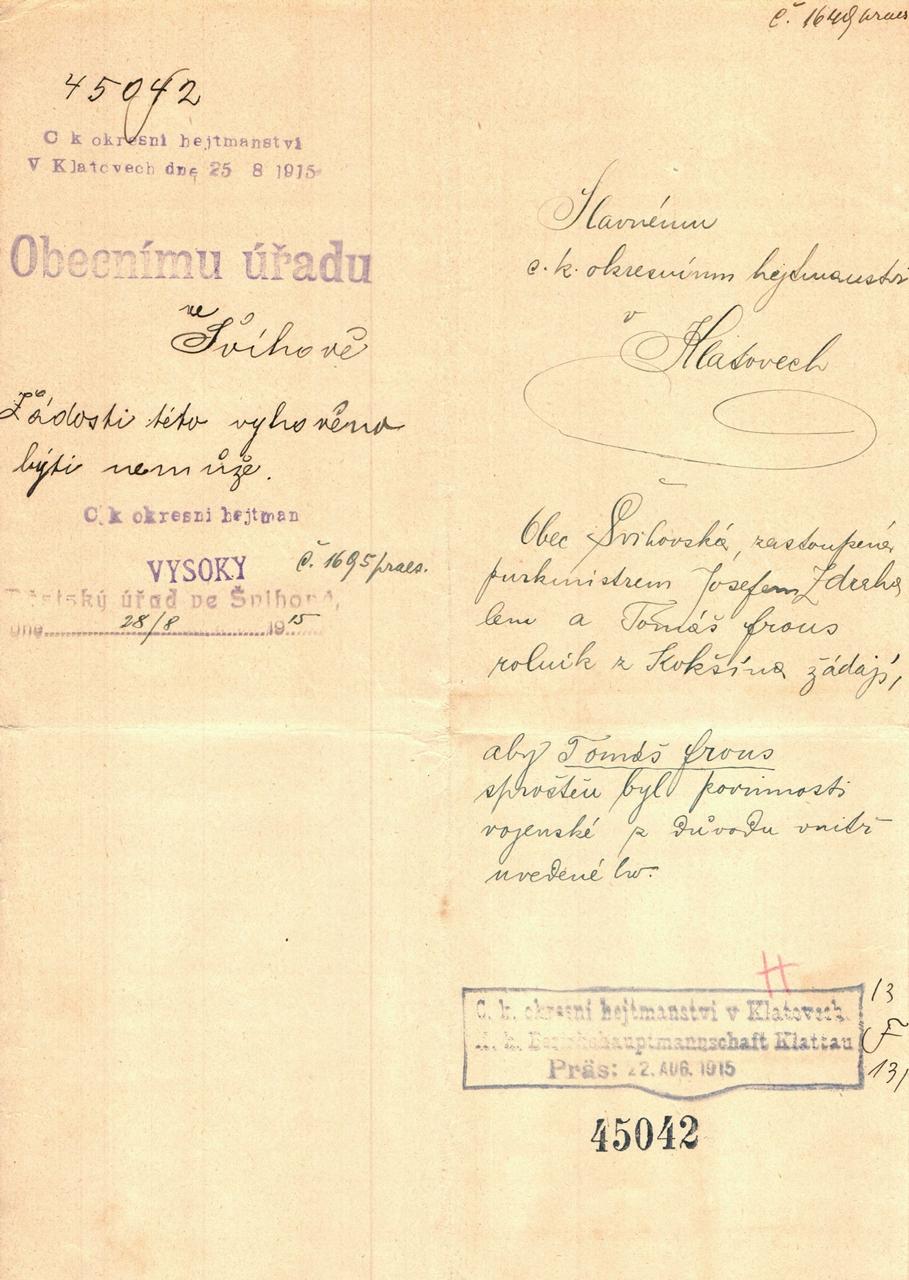 č. 1649 praes
45042
C k okresní hejtmanství
V Klatovech dne 25 8 1915
Obecnímu úřadu
ve
Švihově
Žádosti této vyhověno
býti nemůže.
C. k okresní hejtman
VYSOKY
č. 1695/praes.
Městský úřad ve Švihově,
dne 28/8 1915
Slavnému
c. k. okresnímu hejtmanství
v
Klatovech
Obec Švihovská, zastoupená
purkmistrem Josefem Zdraha
lem a Tomáš Frous
rolník z Kokšína žádají,
aby Tomáš Frous
sproštěn byl povinnosti
vojenské z důvodu vnitř
uvedené
H
C. k. okresní hejtmanství v Klatovech.
K. k. Bezirkshauptmannschaft Klattau
Präs: 22. AUG. 1915
13
F
13/
45042